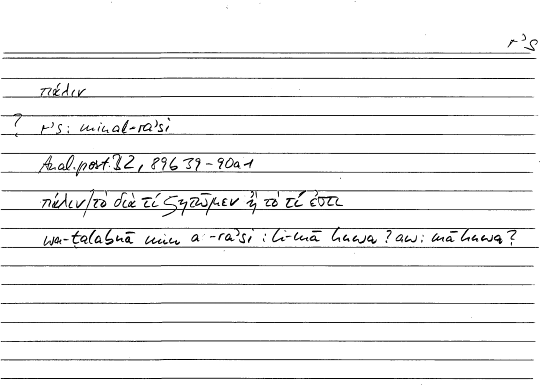 rʾs
πάλιν
? rʾs: min al-raʾsi
Anal. post. B2, 89b39-90a1
πάλιν/τὸ διὰ τί ζητῶμεν ἢ τὸ τί ἐστι
wa-ṭalabnā min a -raʾsi : li-mā huwa ? aw : mā huwa ?